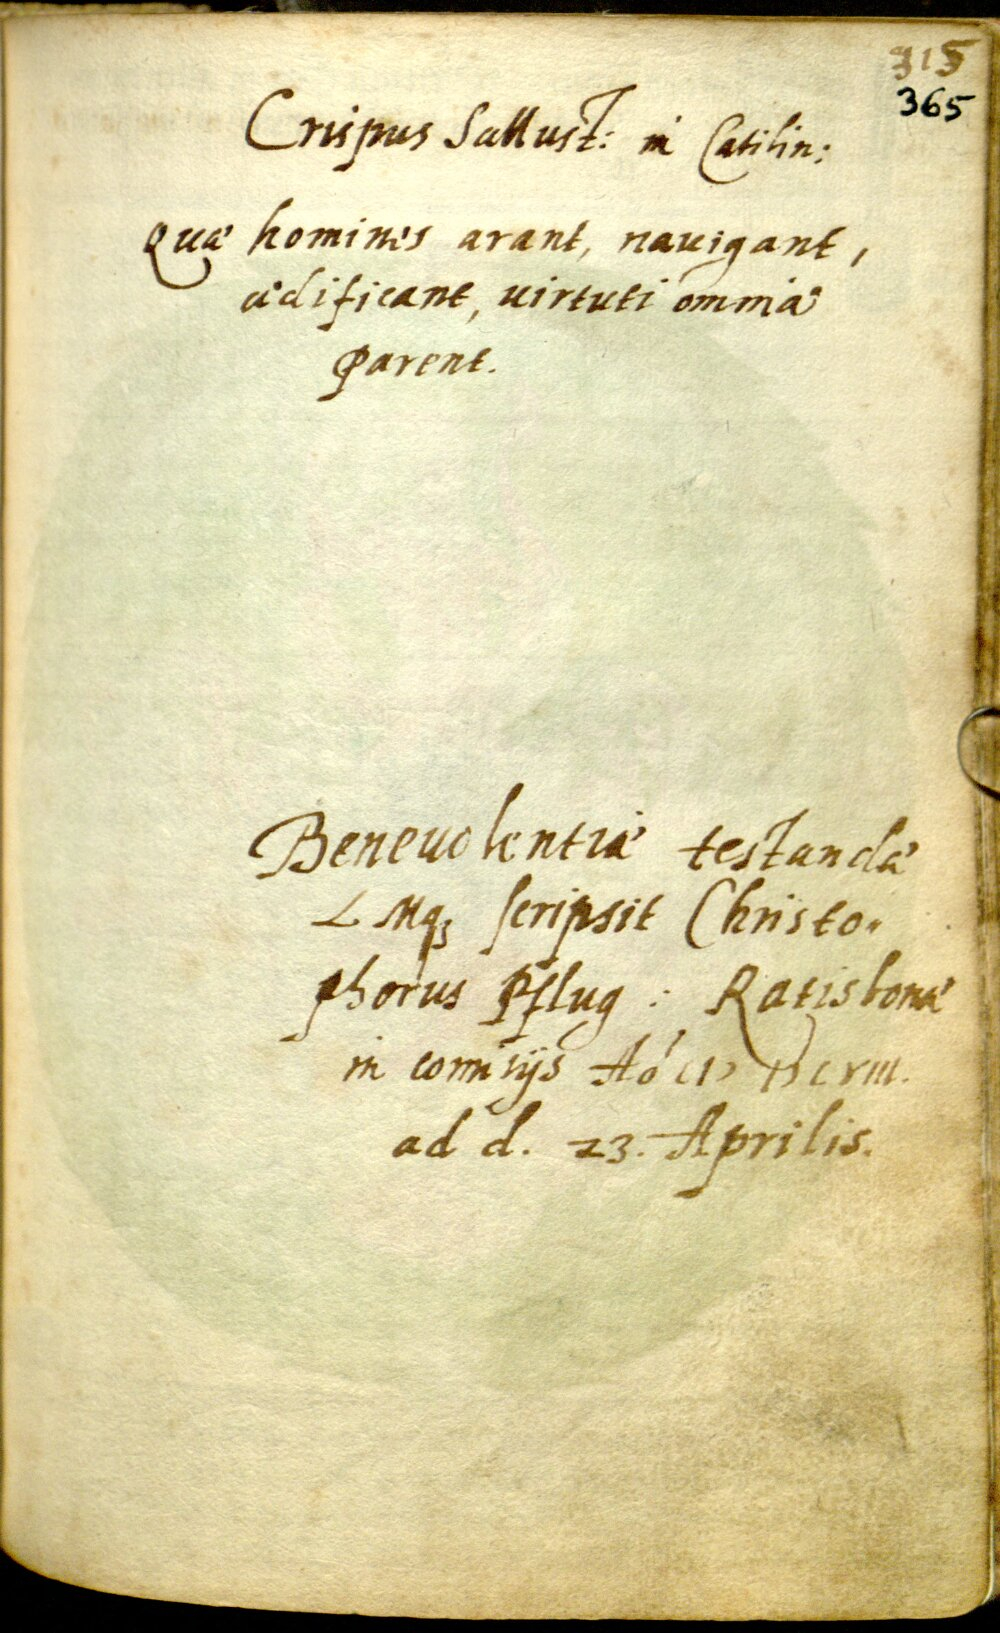 315
365
Crispus Sallust: in Catilin:
Quæ homines arant, nauigant,
ædificant, uirtuti omnia
parent.
Beneuolentiæ testandæ
L Mq3 scripsit Christo-
phorus Pflug : Ratisbonæ
in comitijs Aº CIƆ IƆCVIII.
ad d. 23. Aprilis.